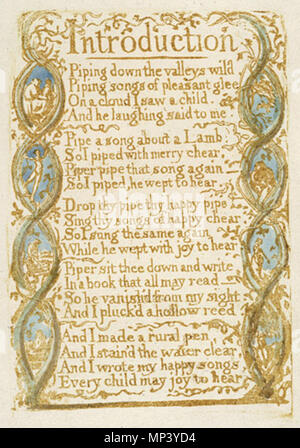 Introduction
Piping down the valleys wild
Piping songs of pleasant glee
On a cloud I saw a child.
And he laughing said to me.
Pipe a song about a Lamb;
So I piped with merry chear,
Piper pipe that song again—
So I piped, he wept to hear.
Drop thy pipe thy happy pipe
Sing thy songs of happy chear
So I sung the same again
While he wept with joy to hear
Piper sit thee down and write
In a book that all may read—
So he vanish'd from my sight
And I pluck'd a hollow reed
And I made a rural pen,
And I stain'd the water clear
And I wrote my happy songs
Every child may joy to hear
alamy
www.alamy.com - MP3YD4